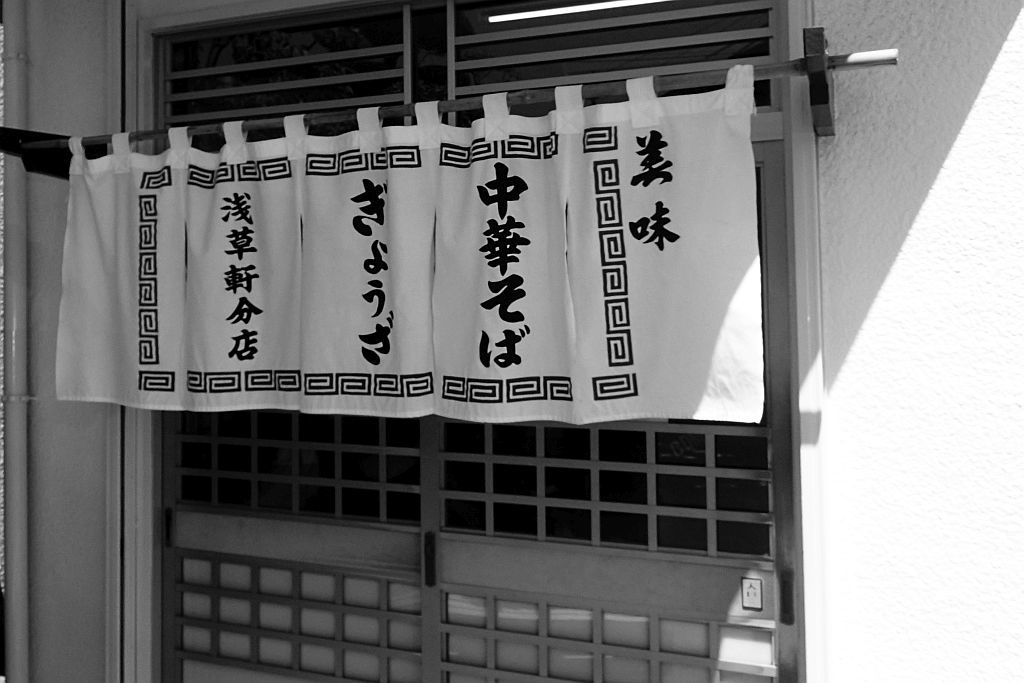 美味
中華そば
ぎょうざ
浅草軒分店
入口